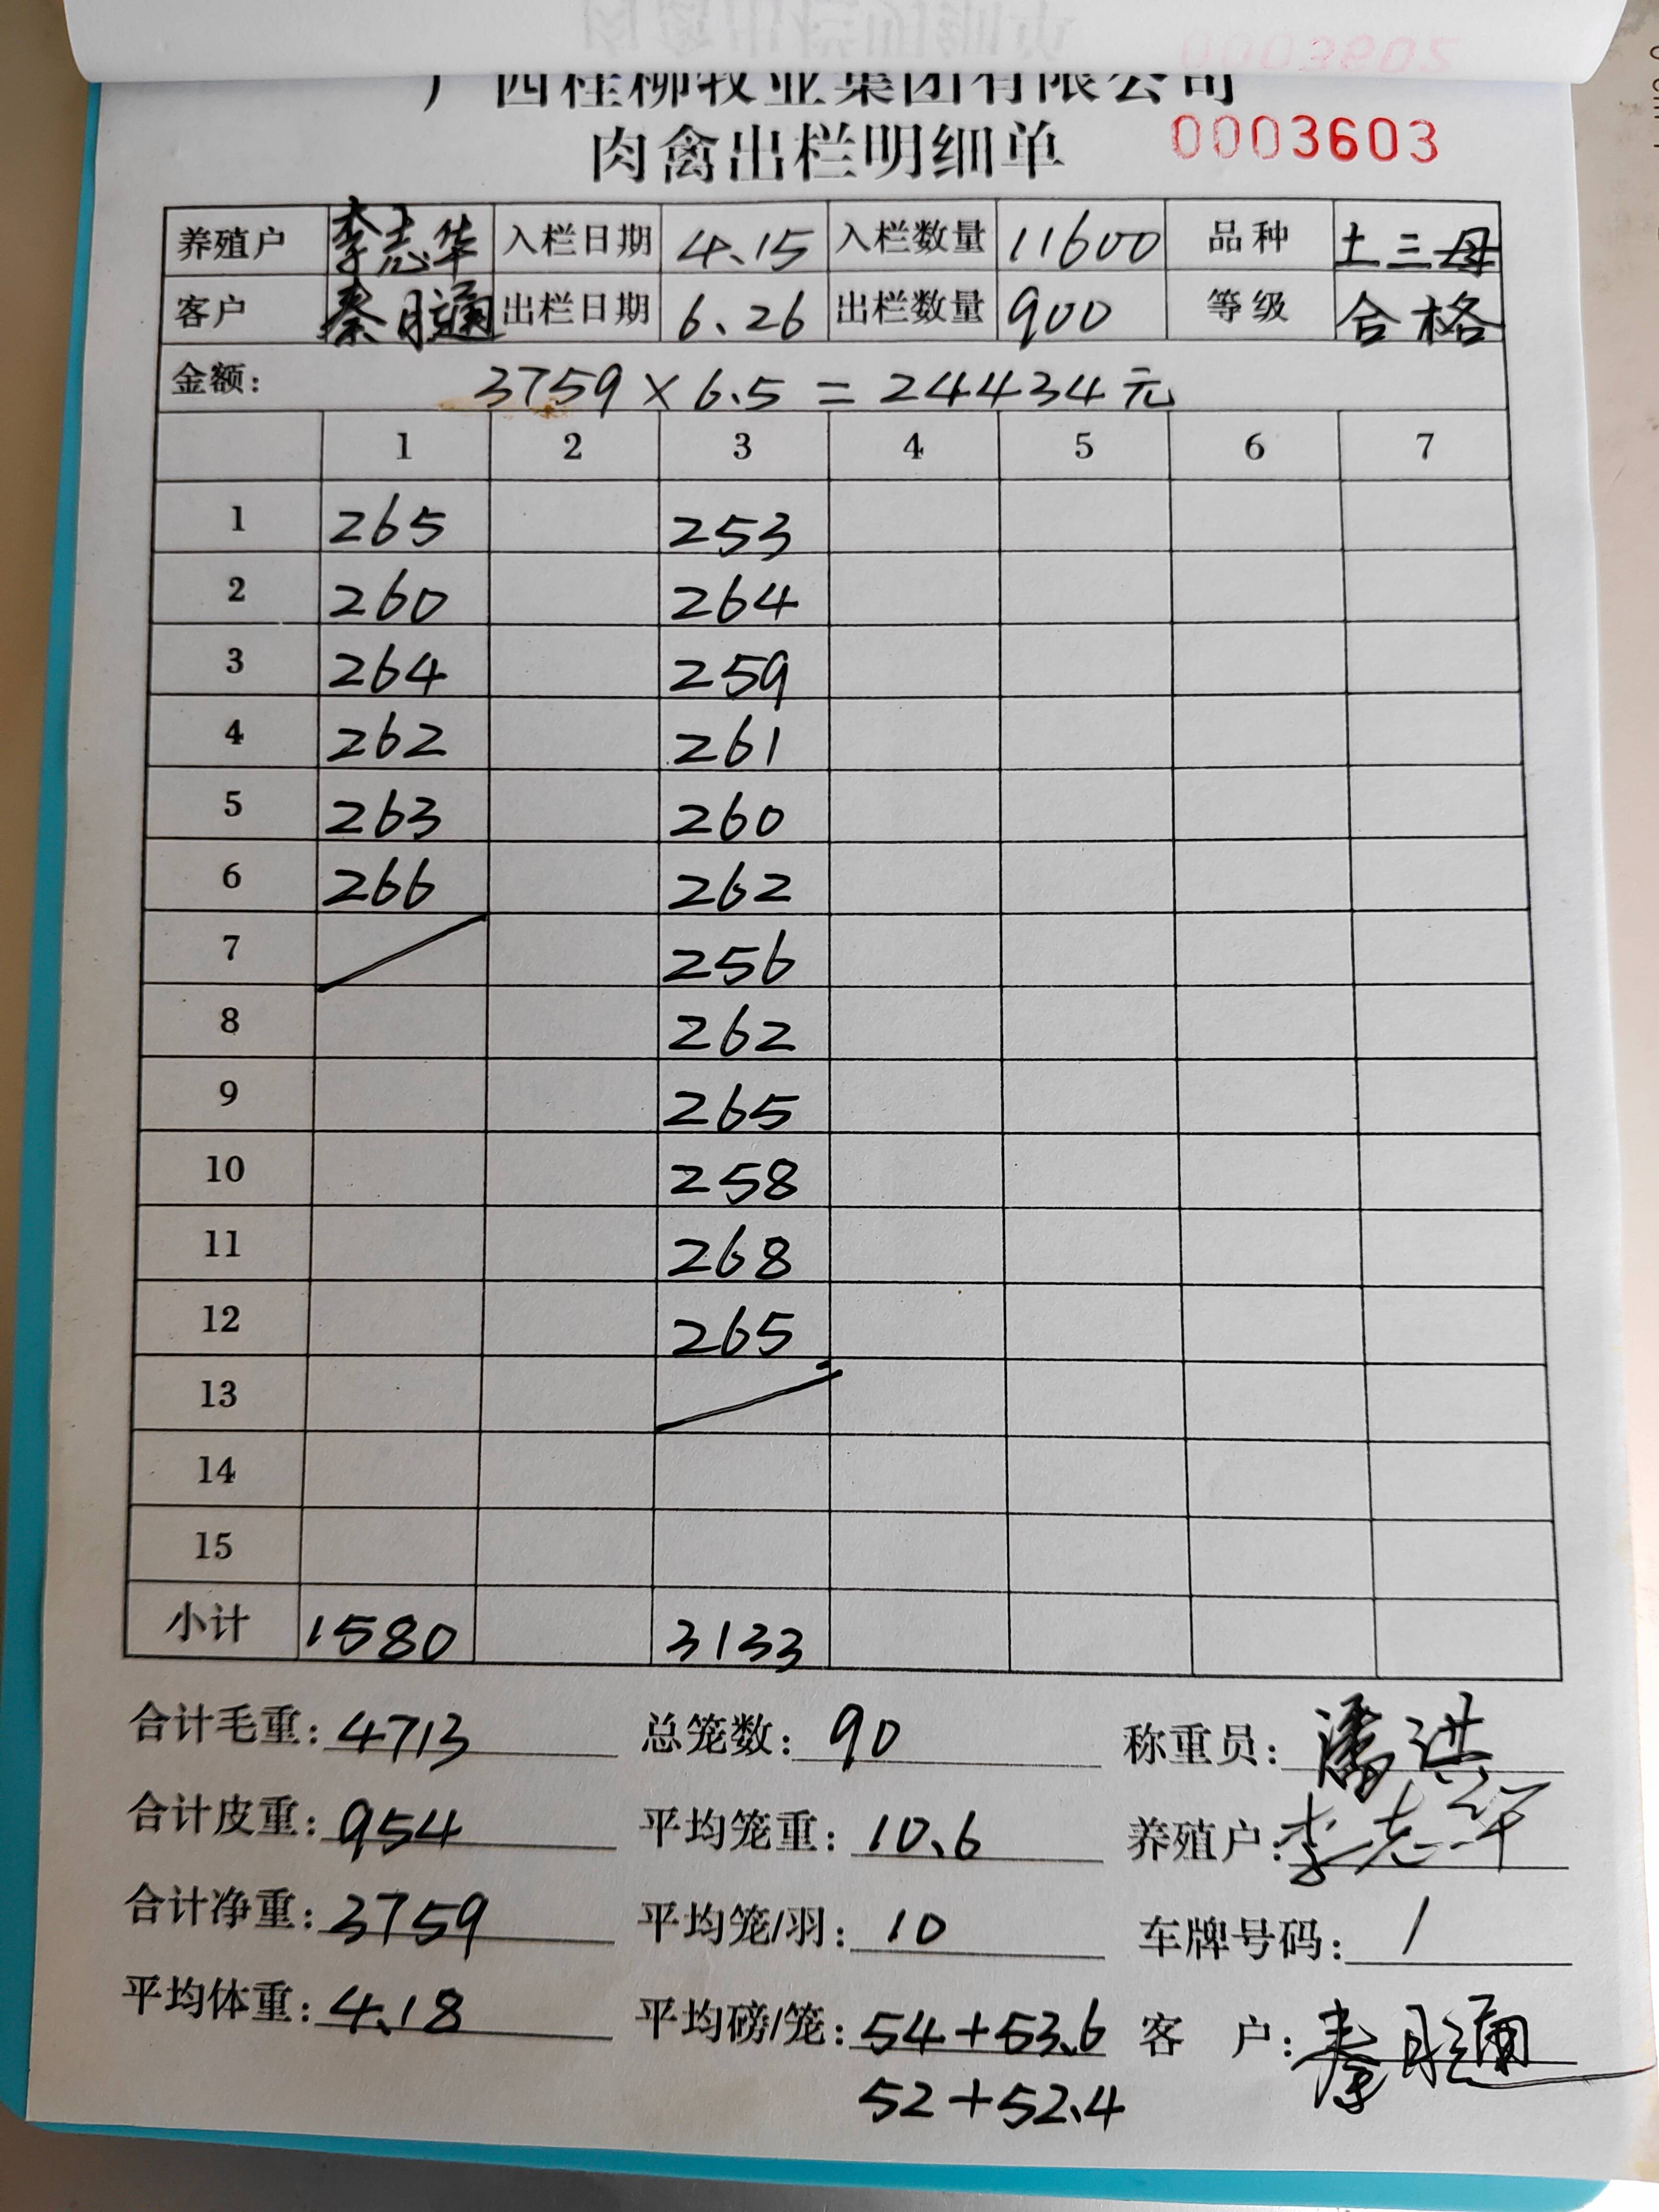 广西桂柳牧业集团有限公司
肉禽出栏明细单 0003603
养殖户 李志华 入栏日期 4.15 入栏数量 11600 品种 土三母
客户 秦月通 出栏日期 6.26 出栏数量 900 等级 合格
金额: 3759×6.5=24434元
1 2 3 4 5 6 7
1 265 253
2 260 264
3 264 259
4 262 261
5 263 260
6 266 262
7 256
8 262
9 265
10 258
11 268
12 265
13
14
15
小计 1580 3133
合计毛重: 4713 总笼数: 90 称重员: 潘洪
合计皮重: 954 平均笼重: 10.6 养殖户: 李志华
合计净重: 3759 平均笼/羽: 10 车牌号码: /
平均体重: 4.18 平均磅/笼: 54+53.6 客 户: 秦月通
52+52.4